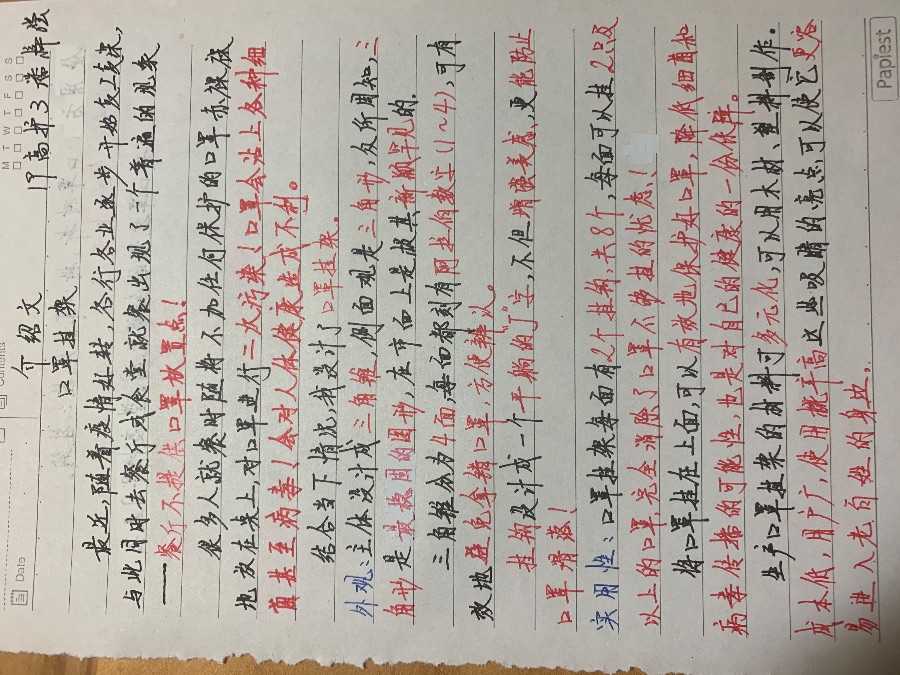 Contents
Date
M T W T F S S
Papiest
介绍文
口罩挂架
最近,随着疫情好转,各行各业逐步开始复工复课,
与此同时去餐厅或食堂就餐出现了一个普遍的现象
——餐厅不提供口罩放置点!
很多人就餐时随将不加任何保护的口罩赤裸裸
地放在桌上,对口罩进行二次污染(口罩会沾上各种细
菌甚至病毒)会对人体健康造成不利。
结合当下情况,我设计了口罩挂架。
外观:主体设计成三角锥,侧面观是三角形,众所周知,三
角形是最稳固的图形,在市面上是极其新颖罕见的.
三角锥分为4面,每面都刻有阿拉伯数字(1~4),可有
效地避免拿错口罩,方便辨认。
挂钩设计成一个平躺的"J"字,不但增强美感,更能防止
口罩滑落!
实用性:口罩挂架每面有2个挂钩,共8个,每面可以挂2只及
以上的口罩完全消除了口罩不够挂的忧虑!
将口罩挂在上面,可以有效地保护好口罩,降低细菌和
病毒传播的可能性,也是对自己的健康的一份保障。
生产口罩挂架的材料可多元化,可以用木材、塑料制作.
成本低,用户广,使用概率高这些吸睛的亮点可以使它更容
易进入老百姓的身边。